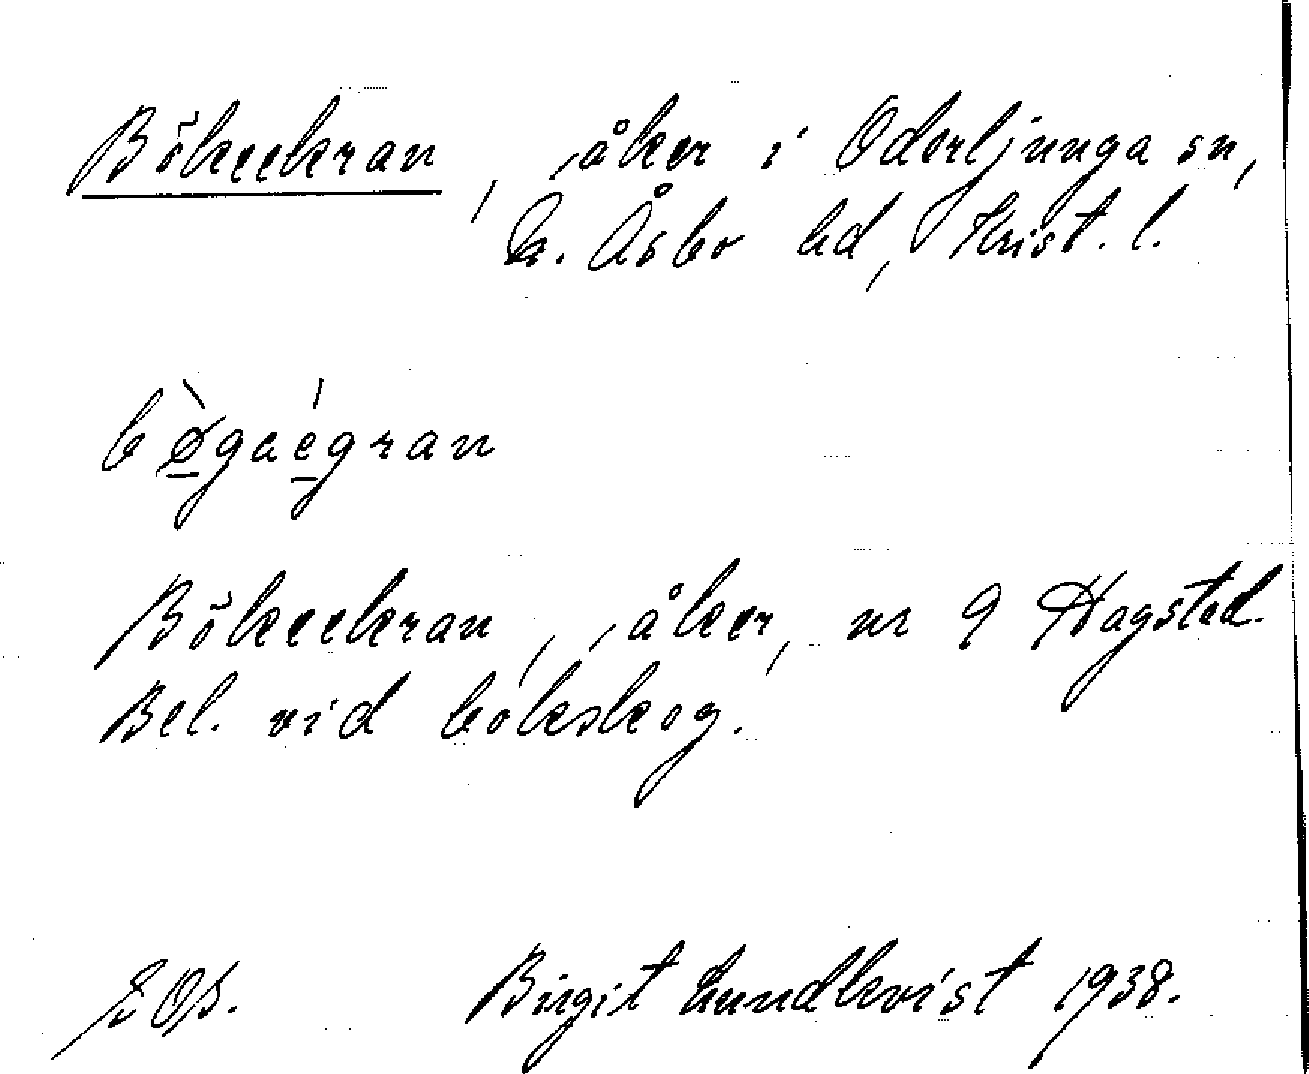 Bökeekran, åker i Oderljunga sn,
N. Åsbo hd, Krist. l.
bø̱̀gaé̱gran
Bökeekran, åker, nr 9 Hagstad.
Bel. vid bokskog.
Birgit Lundkvist 1938.